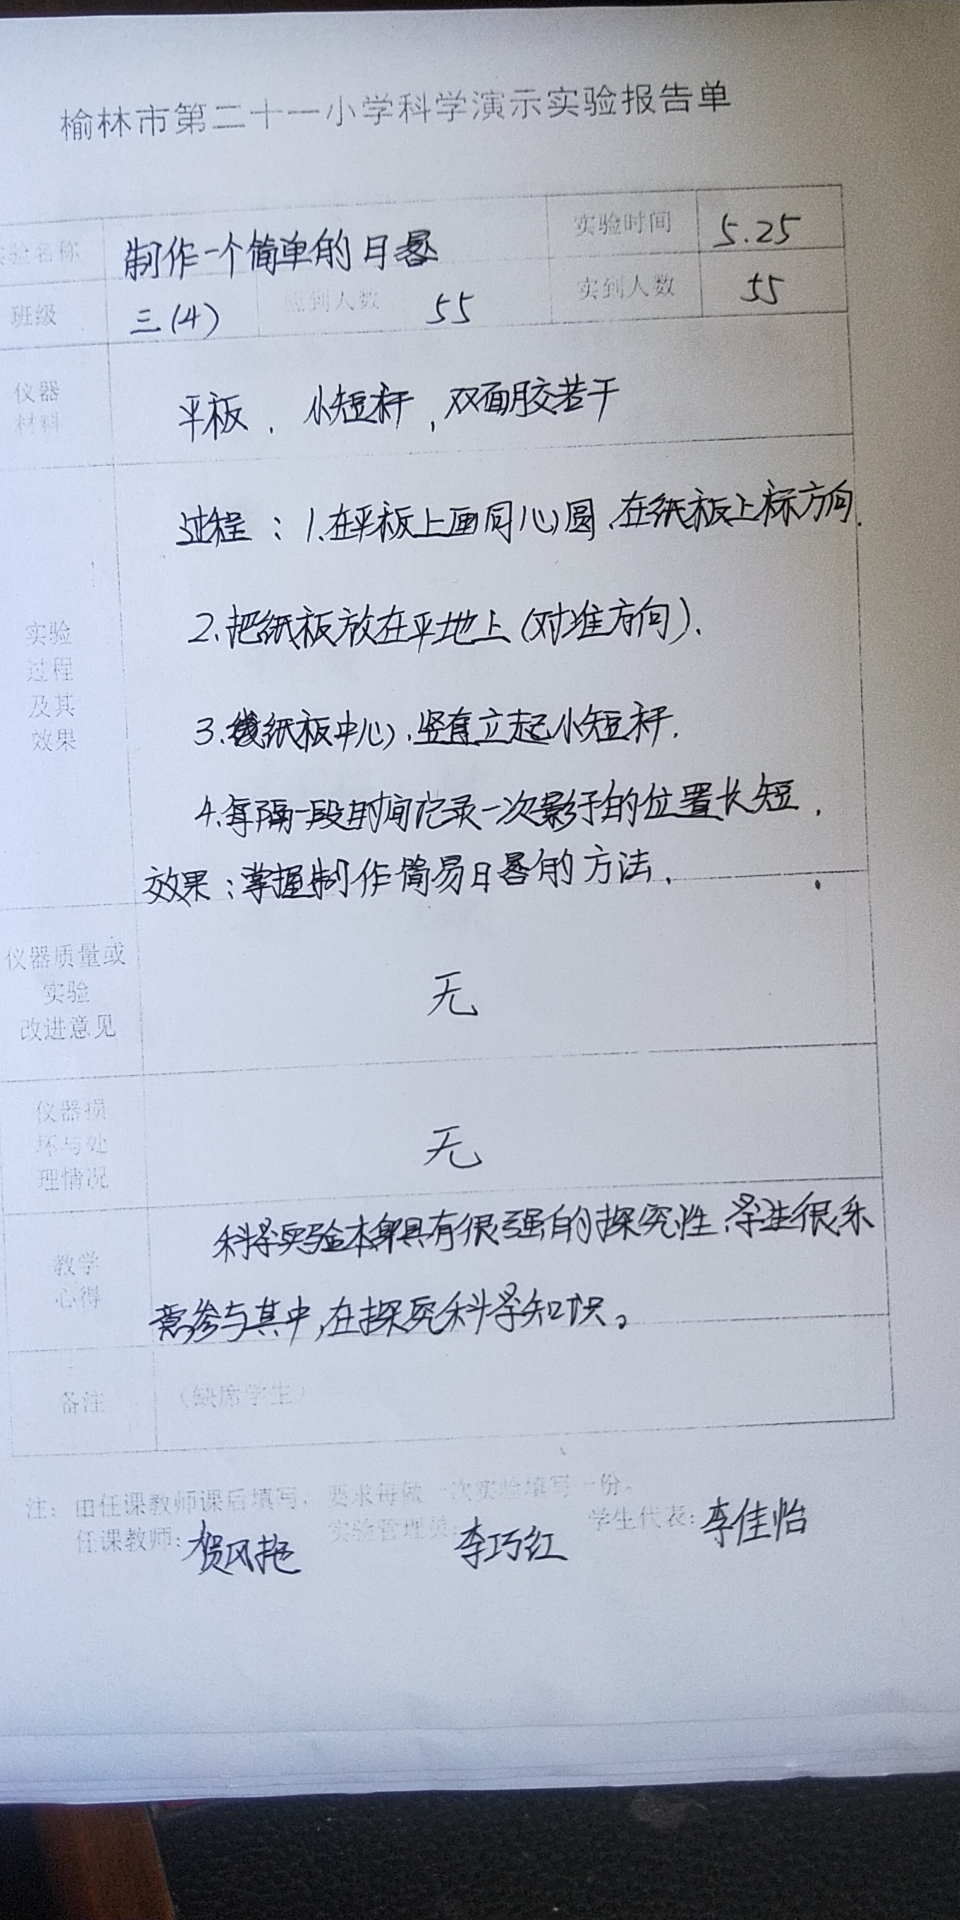 榆林市第二十一小学科学演示实验报告单
实验名称 制作一个简单的日晷 实验时间 5.25
班级 三(4) 应到人数 55 实到人数 55
仪器
材料
平板、小短杆,双面胶若干
实验
过程
及其
效果
过程:1.在平板上画同心圆、在纸板上标方向.
2.把纸板放在平地上(对准方向).
3.纸板中心、竖直立起小短杆.
4.每隔一段时间记录一次影子的位置长短.
效果:掌握制作简易日晷的方法.
仪器质量或
实验
改进意见
无
仪器损
坏与处
理情况
无
教学
心得
科学实验本身具有很强的探究性、学生很乐
意参与其中,在探究科学知识。
备注 (缺席学生)
注:由任课教师课后填写,要求每做一次实验填写一份。
任课教师:贺风艳 实验管理员:李巧红 学生代表:李佳怡